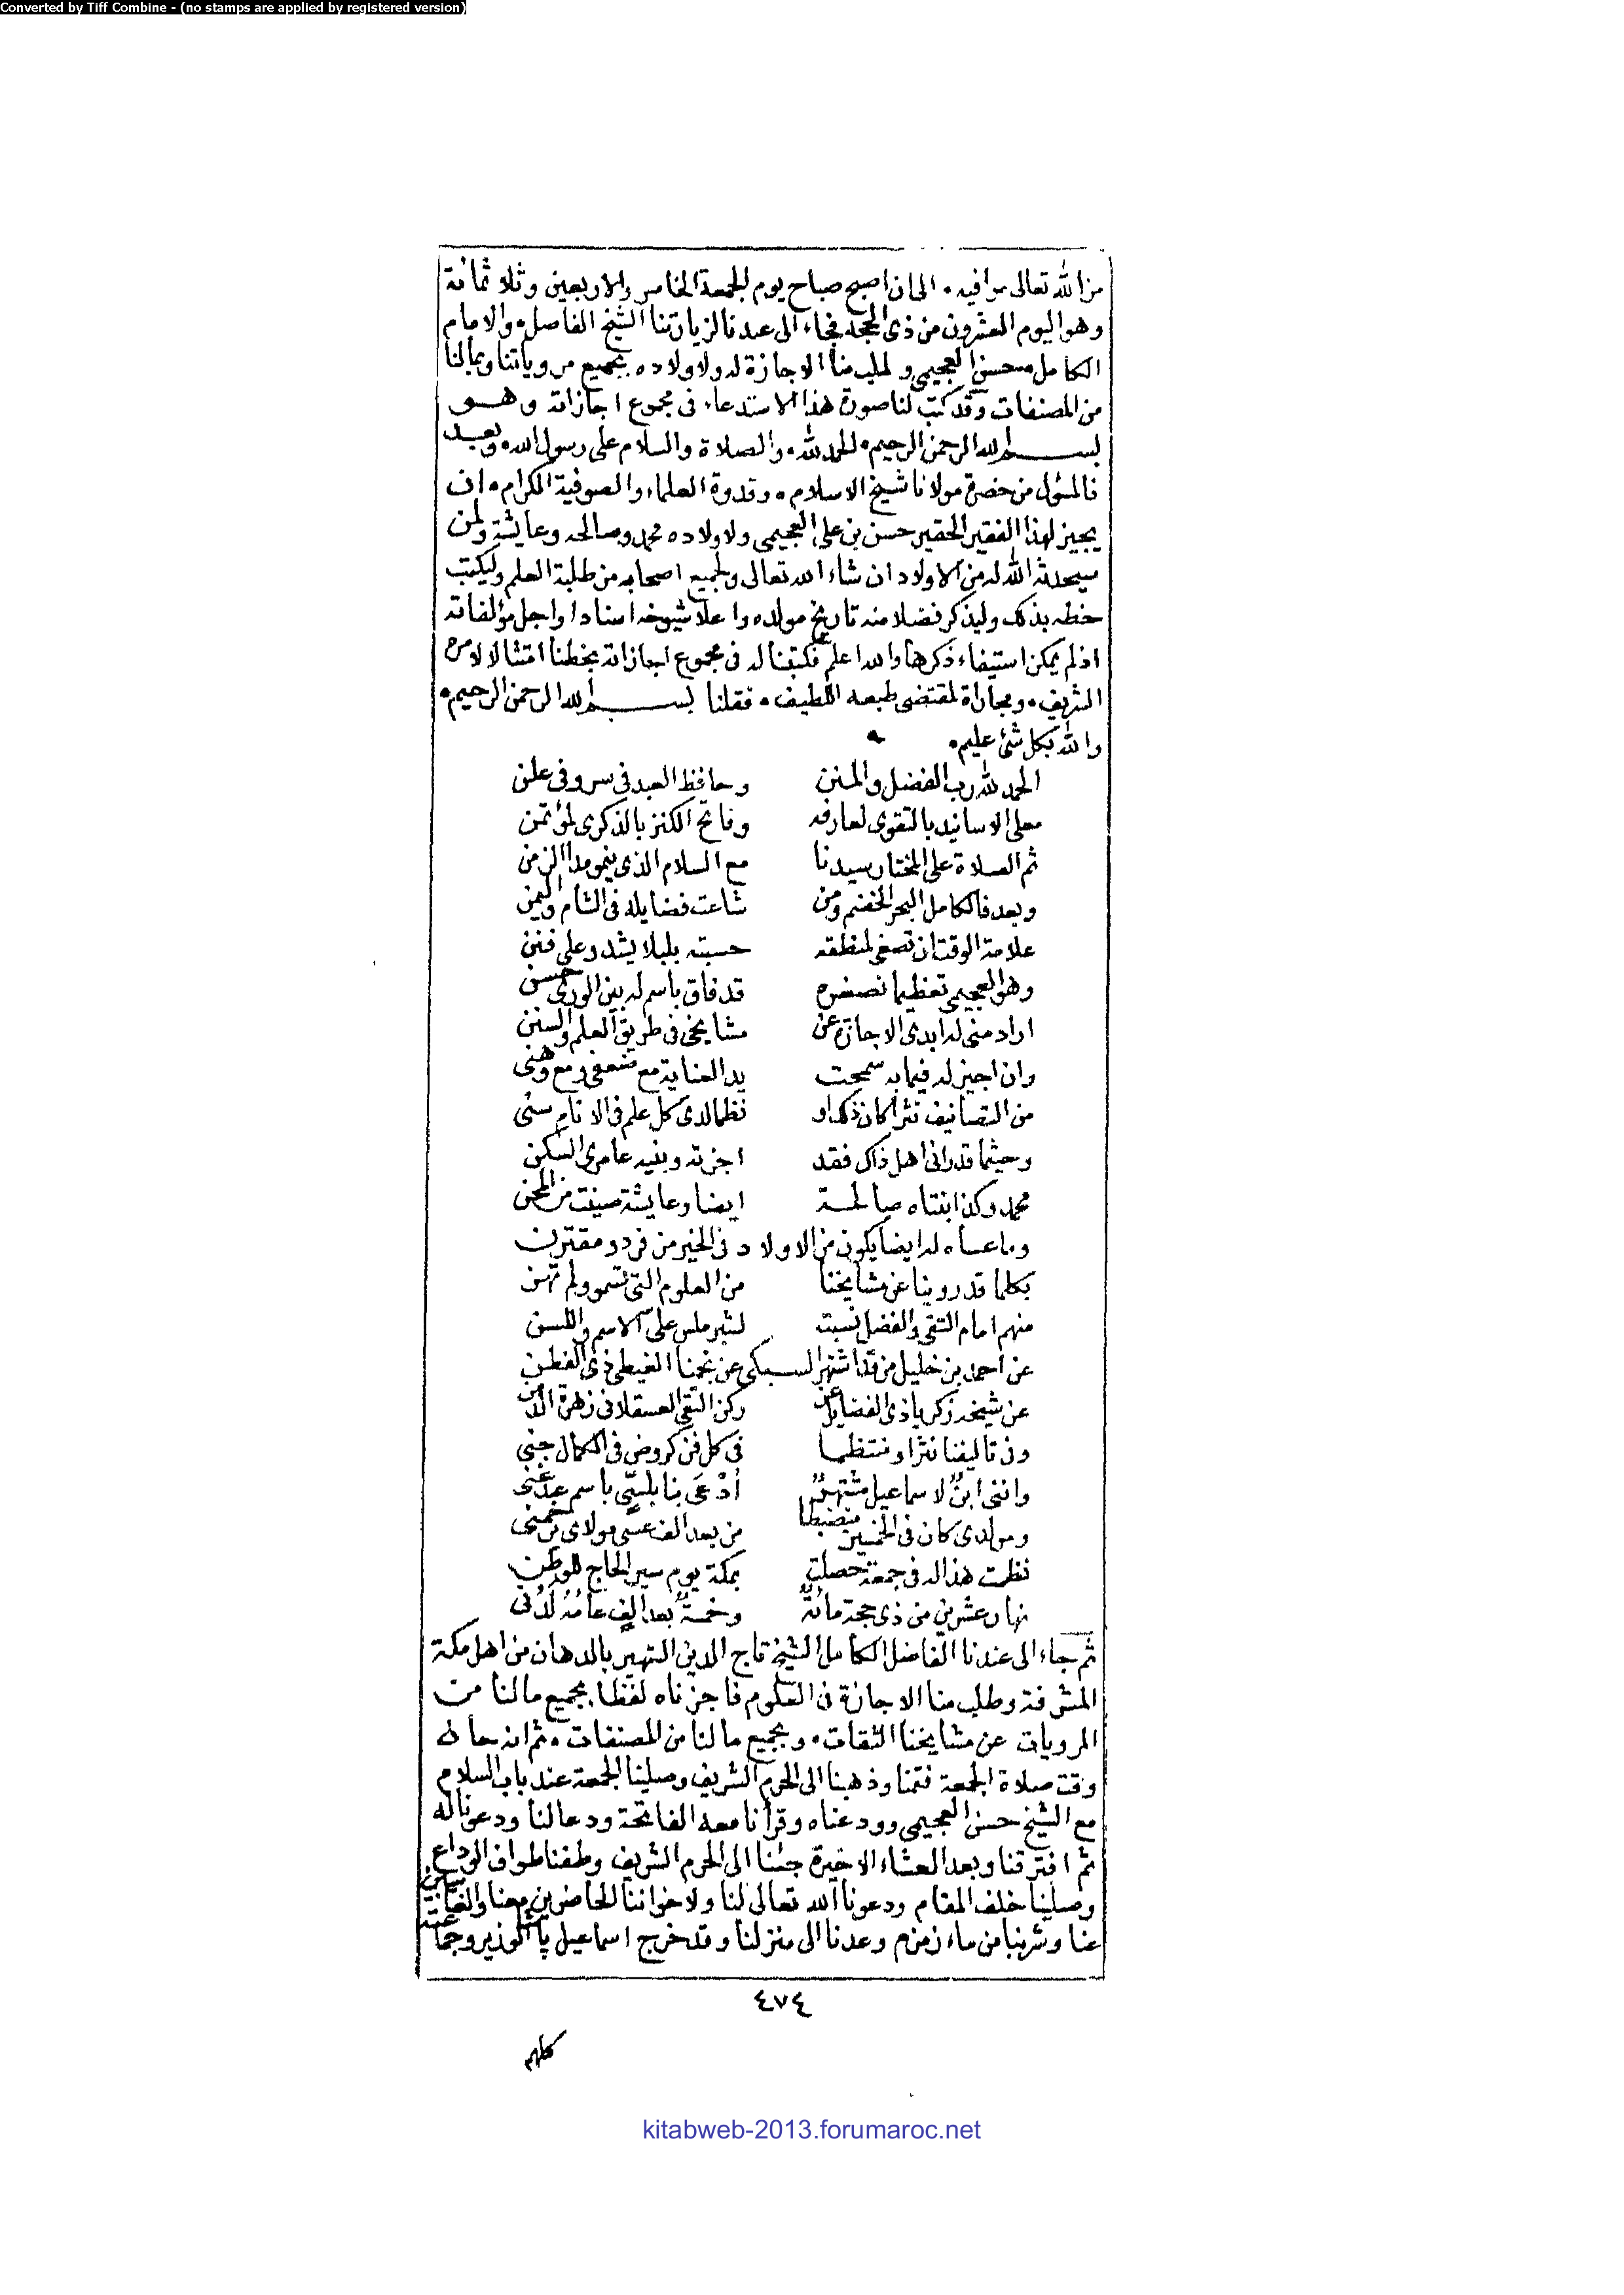 Converted by Tiff Combine - (no stamps are applied by registered version)
من الله تعالى موافيه . الى ان اصبح صباح يوم الجمعة الخامس والاربعين وثلاثمائة
وهو اليوم العشرون من ذى الحجة فجاء الى عندنا لزيارتنا الشيخ الفاضل . والامام
الكامل حسن العجيمى وطلب منا الاجازة له ولاولاده بجميع مروياتنا وبمالنا
من المصنفات وقد كتب لنا صورة هذا الاستدعاء فى مجموع اجازاته وهو
بسم الله الرحمن الرحيم . الحمد لله . والصلاة والسلام على رسول الله . وبعد
فالمسؤل من حضرة مولانا شيخ الاسلام . وقدوة العلماء والصوفية الكرام . ان
يجيز لهذا الفقير الحقير حسن بن على العجيمى ولاولاده محمد وصالحه وعايشة ولمن
سيحدثه الله له من الاولاد ان شاء الله تعالى ولجميع اصحابه من طلبة العلم وليكتب
خطه بذلك وليذكر فضلا منه تاريخ مولده واعلا شيوخه اسنادا واجل مؤلفاته
اذ لم يمكن استيفاء ذكرها والله اعلم فكتبنا له فى مجموع اجازاته بخطنا امتثالا لامره
الشريف . ومجاراة لمقتضى طبعه اللطيف . فقلنا بسم الله الرحمن الرحيم .
والله بكل شئ عليم .
الحمد لله رب الفضل والمنن وحافظ العبد فى سر وفى علن
معلى الاسانيد بالتقوى لعارفه وفاتح الكنز بالذكرى لمؤتمن
ثم الصلاة على المختار سيدنا مع السلام الذى ينمو مدا الزمن
وبعد فالكامل البحر الخضم ومن شاعت فضايله فى الشام واليمن
علامة الوقت ان تصغى لمنطقه حسبته بلبلا يشدو على فنن
وهو العجيمى تعظيما نصغره قد فاق باسم له بين الورى حسن
اراد منى له ابدى الاجازة عن مشايخى فى طريق العلم والسنن
وان اجيز له فيما به سمحت يد العناية مع ضعفى ومع وهنى
من التصانيف نثرا كان ذلك او نظما لدى كل علم فى الانام سنى
وحيثما قد رانى اهل ذاك فقد اجزته وبنيه عامرى السكن
محمد وكذا ابنتاه صالحة ايضا وعايشة صينت من المحن
وما عساه له ايضا يكون من الاولاد فى الخير من فرد ومقترن
بكلما قد روينا عن مشايخنا من العلوم التى تسمو ولم تهن
منهم امام التقى والفضل نسبت لشبرملس على الاسم واللسن
عن احمد بن خليل من قد اشتهر السبكى عن نجمنا الغيطى ذى الفطن
عن شيخه زكريا ذى الفضايل عن ركن التقى العسقلانى زهرة
وفى تاليفنا نثرا ومنتظما فى كل فن كروض فى الكمال جنى
واننى ابنٌ لاسماعيل مشتهرٌ أُدْعَى بنابلسىّ باسم عبد غنى
ومولدى كان فى الخمسين منضبطا من بعد الف عسى مولاى
نظمت هذا له فى جمعة حصلت بمكة يوم سير الحاج للوطن
نهار عشرين من ذى حجة مائةٌ وخمسةٌ بعد الفٍ عامُهُ لَدُنى
ثم جاء الى عندنا الفاضل الكامل الشيخ تاج الدين الشهير بالدهان من اهل مكة
المشرفة وطلب منا الاجازة فى العلوم فاجزناه لفظا بجميع مالنا من
المرويات عن مشايخنا الثقات . وبجميع مالنا من المصنفات . ثم انه حان
وقت صلاة الجمعة فقمنا وذهبنا الى الحرم الشريف وصلينا الجمعة عند باب السلام
مع الشيخ حسن العجيمى وودعناه وقرأنا معه الفاتحة ودعا لنا ودعونا له
ثم افترقنا وبعد العشاء الاخيرة جئنا الى الحرم الشريف وطفنا طواف الوداع
وصلينا خلف المقام ودعونا الله تعالى لنا ولاخواننا الحاضرين معنا والغائبين
عنا وشربنا من ماء زمزم وعدنا الى منزلنا وقد خرج اسماعيل باشا الوزير وجماعته
٤٧٤
كلهم
kitabweb-2013.forumaroc.net